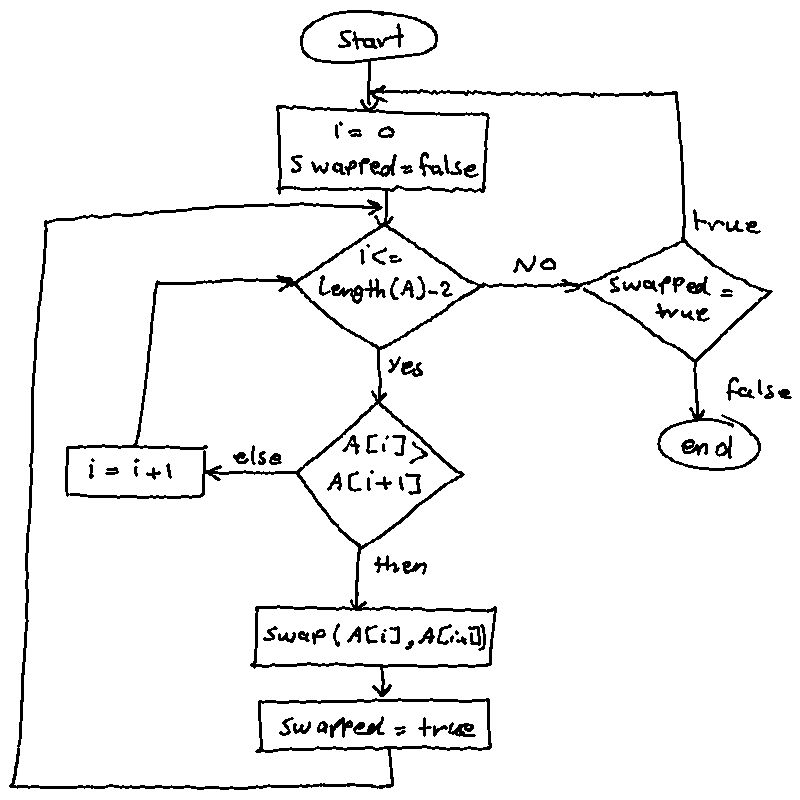 Start
i = 0
Swapped = false
i <=
length(A)-2
NO
true
Swapped =
true
yes
false
end
A[i] >
A[i+1]
else
i = i+1
then
swap(A[i], A[i+1])
swapped = true